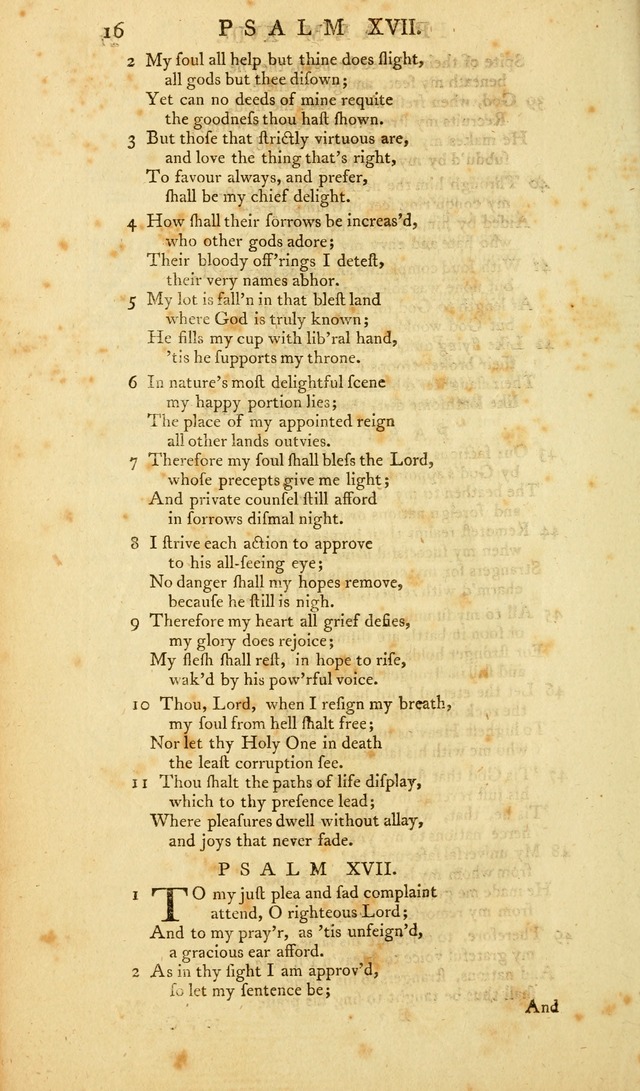 16 PSALM XVII.
2 My ſoul all help but thine does ſlight,
all gods but thee diſown;
Yet can no deeds of mine requite
the goodneſs thou haſt ſhown.
3 But thoſe that ſtrictly virtuous are,
and love the thing that's right,
To favour always, and prefer,
ſhall be my chief delight.
4 How ſhall their ſorrows be increas'd,
who other gods adore;
Their bloody off'rings I deteſt,
their very names abhor.
5 My lot is fall'n in that bleſt land
where God is truly known;
He fills my cup with lib'ral hand,
'tis he ſupports my throne.
6 In nature's moſt delightful ſcene
my happy portion lies;
The place of my appointed reign
all other lands outvies.
7 Therefore my ſoul ſhall bleſs the Lord,
whoſe precepts give me light;
And private counſel ſtill afford
in ſorrows diſmal night.
8 I ſtrive each action to approve
to his all-ſeeing eye;
No danger ſhall my hopes remove,
becauſe he ſtill is nigh.
9 Therefore my heart all grief defies,
my glory does rejoice;
My fleſh ſhall reſt, in hope to riſe,
wak'd by his pow'rful voice.
10 Thou, Lord, when I reſign my breath,
my ſoul from hell ſhalt free;
Nor let thy Holy One in death
the leaſt corruption ſee.
11 Thou ſhalt the paths of life diſplay,
which to thy preſence lead;
Where pleaſures dwell without allay,
and joys that never fade.
PSALM XVII.
1 TO my juſt plea and ſad complaint
attend, O righteous Lord;
And to my pray'r, as 'tis unfeign'd,
a gracious ear afford.
2 As in thy ſight I am approv'd,
ſo let my ſentence be;
And